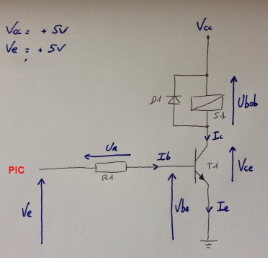 Vcc = + 5V
Ve = + 5V
Vcc
D1
S1
Ubob
Ic
UR
Ib
T1
Vce
PIC
R1
Ve
Vbe
Ie